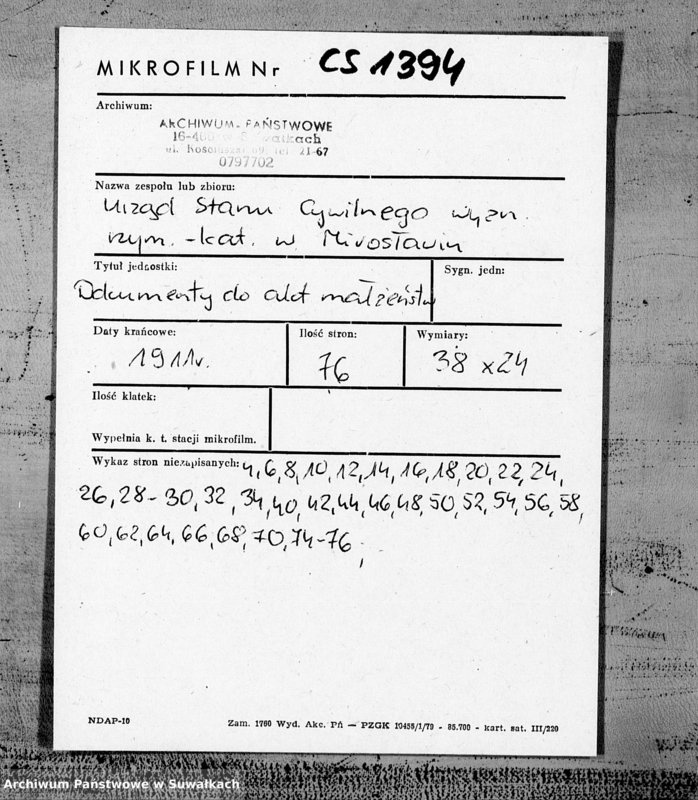 MIKROFILM Nr CS 1394
Archiwum:
ARCHIWUM PAŃSTWOWE
16-400 w Suwałkach
ul. Kościuszki 69, tel. 21-67
0797702
Nazwa zespołu lub zbioru:
Urząd Stanu Cywilnego wyzn.
rzym.-kat. w Mirosławiu
Tytuł jednostki: Sygn. jedn:
Dokumenty do akt małżeństw
Daty krańcowe: Ilość stron: Wymiary:
1911r. 76 38 x 24
Ilość klatek:
Wypełnia k. t. stacji mikrofilm.
Wykaz stron niezapisanych: 4, 6, 8, 10, 12, 14, 16, 18, 20, 22, 24,
26, 28-30, 32, 34, 40, 42, 44, 46, 48, 50, 52, 54, 56, 58,
60, 62, 64, 66, 68, 70, 74-76,
NDAP-10 Zam. 1760 Wyd. Akc. Pń — PZGK 10455/1/79 - 85.700 - kart. sat. III/220
Archiwum Państwowe w Suwałkach